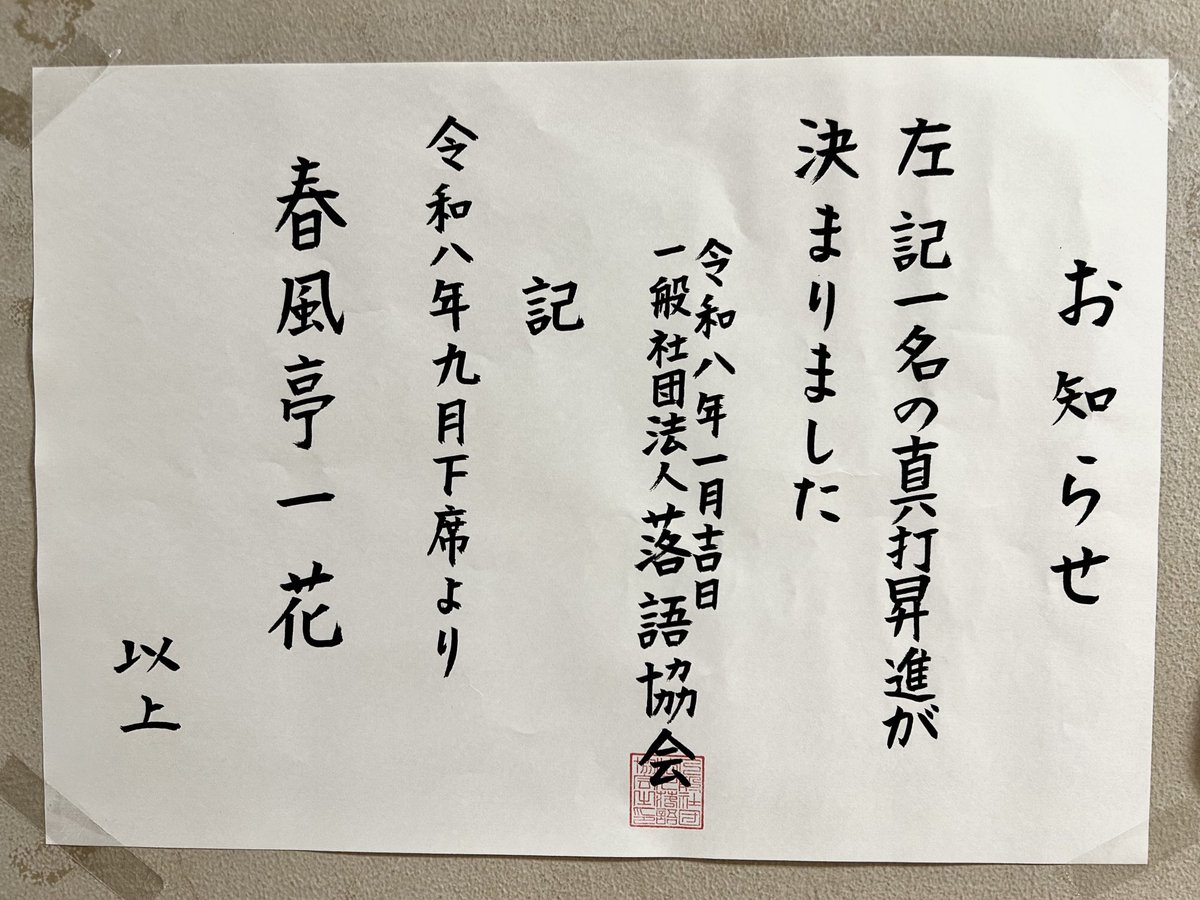 お知らせ
左記一名の真打昇進が
決まりました
令和八年一月吉日
一般社団法人落語協会
記
令和八年九月下席より
春風亭一花
以上